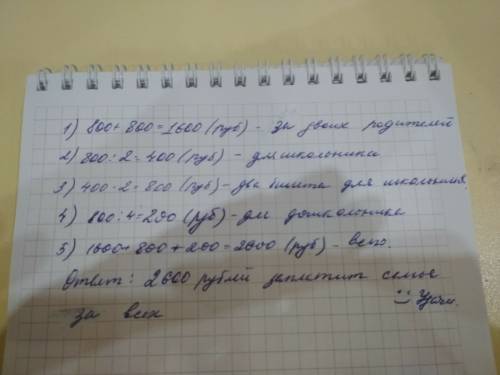 1) 800+800=1600 (руб) - за двоих родителей
2) 800:2=400 (руб) - для школьника
3) 400·2=800 (руб) - два билета для школьника
4) 800:4=200 (руб) - для дошкольника
5) 1600+800+200=2600 (руб) - всего.
Ответ: 2600 рублей заплатит семья
за всех